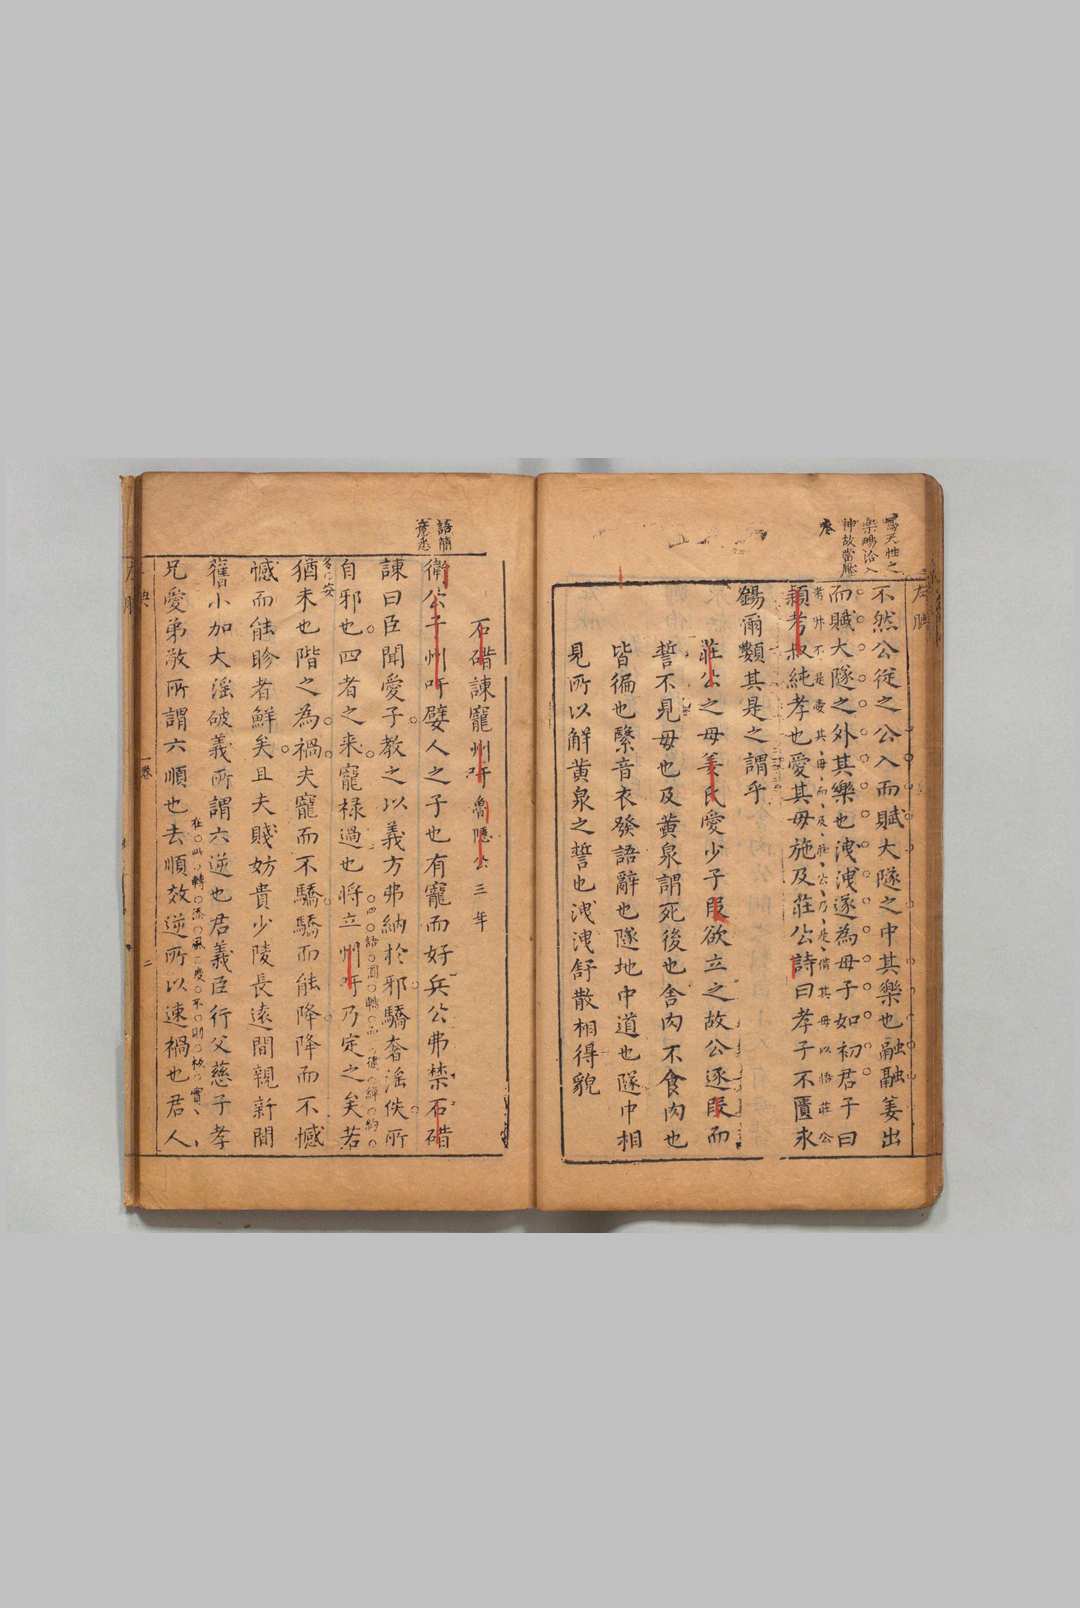 不然公從之公入而賦大隧之中其樂也融融姜出
而賦大隧之外其樂也洩洩遂為母子如初君子曰
考叔不是愛其母而及莊公乃是借其母以悟莊公
頴考叔純孝也愛其母施及莊公詩曰孝子不匱永
錫爾類其是之謂乎
莊公之母姜氏愛少子段欲立之故公逐段而
誓不見母也及黄泉謂死後也舍肉不食肉也
皆徧也繄音衣發語辭也隧地中道也隧中相
見所以解黄泉之誓也洩洩舒散相得貌
語簡
意悉
石碏諫寵州吁 魯隱公三年
衛公子州吁嬖人之子也有寵而好兵公弗禁石碏
諫曰臣聞愛子教之以義方弗納於邪驕奢淫佚所
自邪也四者之来寵禄過也将立州吁乃定之矣若
猶未也階之為禍夫寵而不驕驕而能降降而不憾
憾而能眕者鮮矣且夫賤妨貴少陵長遠間親新間
舊小加大淫破義所謂六逆也君義臣行父慈子孝
兄愛弟敬所謂六順也去順效逆所以速禍也君人
卷一
二